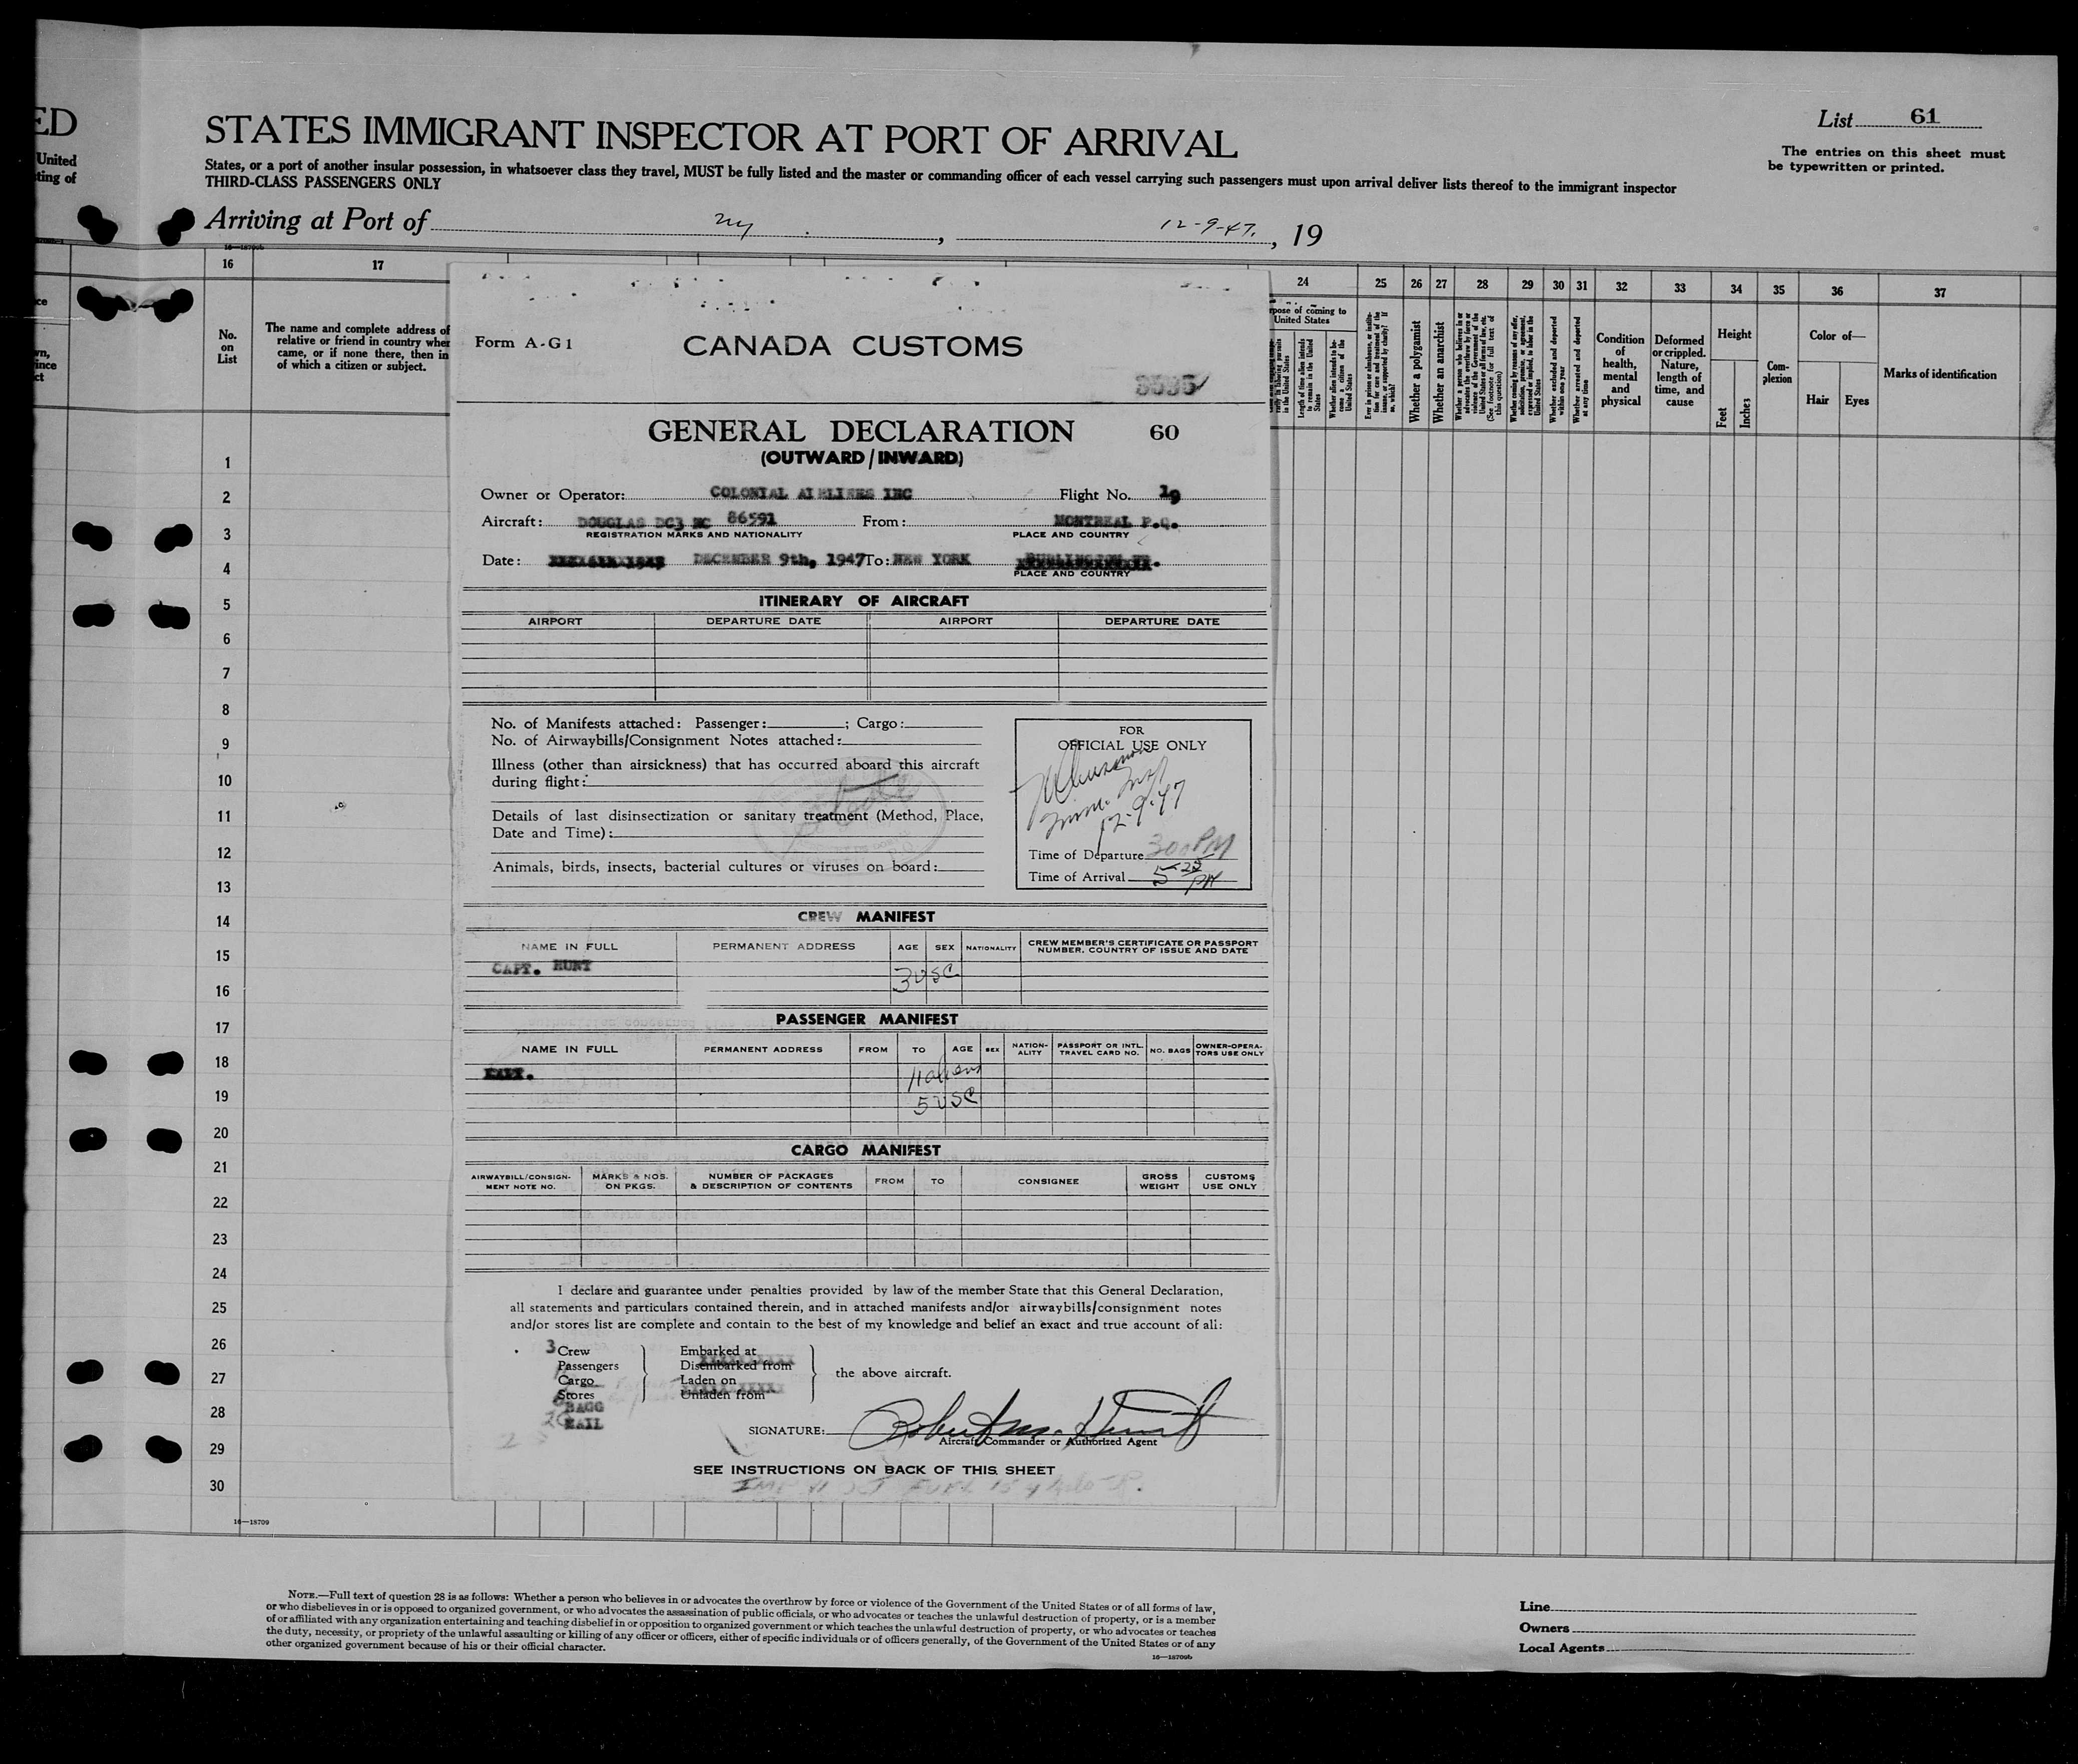 ED
United
ting of
STATES IMMIGRANT INSPECTOR AT PORT OF ARRIVAL
List 61
The entries on this sheet must
be typewritten or printed.
States, or a port of another insular possession, in whatsoever class they travel, MUST be fully listed and the master or commanding officer of each vessel carrying such passengers must upon arrival deliver lists thereof to the immigrant inspector
THIRD-CLASS PASSENGERS ONLY
Arriving at Port of ny, 12-9-47, 19
16 17 24 25 26 27 28 29 30 31 32 33 34 35 36 37
No.
on
List
The name and complete address of
relative or friend in country whe
came, or if none there, then in
of which a citizen or subject.
pose of coming to
United States
Length of time alien intends
to remain in the United
States
Whether alien intends to be-
come a citizen of the
United States
Whether a polygamist
Whether an anarchist
(See footnote for full text of
this question)
Whether excluded and deported
within one year
Whether arrested and deported
at any time
Condition
of
health,
mental
and
physical
Deformed
or crippled.
Nature,
length of
time, and
cause
Height
Feet
Inches
Com-
plexion
Color of—
Hair
Eyes
Marks of identification
1
2
3
4
5
6
7
8
9
10
11
12
13
14
15
16
17
18
19
20
21
22
23
24
25
26
27
28
29
30
16—18709
Form A-G1
CANADA CUSTOMS
GENERAL DECLARATION 60
(OUTWARD/INWARD)
Owner or Operator: COLONIAL AIRLINES INC Flight No. 19
Aircraft: DOUGLAS DC3 NC 86591 From: MONTREAL P.Q.
REGISTRATION MARKS AND NATIONALITY PLACE AND COUNTRY
Date: DECEMBER 9th, 1947 To: NEW YORK
PLACE AND COUNTRY
ITINERARY OF AIRCRAFT
AIRPORT DEPARTURE DATE AIRPORT DEPARTURE DATE
No. of Manifests attached: Passenger: ; Cargo:
No. of Airwaybills/Consignment Notes attached:
Illness (other than airsickness) that has occurred aboard this aircraft
during flight:
Details of last disinsectization or sanitary treatment (Method, Place,
Date and Time):
Animals, birds, insects, bacterial cultures or viruses on board:
FOR
OFFICIAL USE ONLY
12-9-47
Time of Departure 300 PM
Time of Arrival 5 25 PM
CREW MANIFEST
NAME IN FULL PERMANENT ADDRESS AGE SEX NATIONALITY CREW MEMBER'S CERTIFICATE OR PASSPORT
NUMBER, COUNTRY OF ISSUE AND DATE
CAPT. HUNT
3 USC
PASSENGER MANIFEST
NAME IN FULL PERMANENT ADDRESS FROM TO AGE SEX NATION-
ALITY PASSPORT OR INTL.
TRAVEL CARD NO. NO. BAGS OWNER-OPERA-
TORS USE ONLY
11 aliens
5 USC
CARGO MANIFEST
AIRWAYBILL/CONSIGN-
MENT NOTE NO. MARKS & NOS.
ON PKGS. NUMBER OF PACKAGES
& DESCRIPTION OF CONTENTS FROM TO CONSIGNEE GROSS
WEIGHT CUSTOMS
USE ONLY
I declare and guarantee under penalties provided by law of the member State that this General Declaration,
all statements and particulars contained therein, and in attached manifests and/or airwaybills/consignment notes
and/or stores list are complete and contain to the best of my knowledge and belief an exact and true account of all:
3 Crew Embarked at
Passengers Disembarked from
Cargo Laden on the above aircraft.
Stores Unladen from
BAGG
MAIL
SIGNATURE: Robert M. Hunt
Aircraft Commander or Authorized Agent
SEE INSTRUCTIONS ON BACK OF THIS SHEET
NOTE.—Full text of question 28 is as follows: Whether a person who believes in or advocates the overthrow by force or violence of the Government of the United States or of all forms of law,
or who disbelieves in or is opposed to organized government, or who advocates the assassination of public officials, or who advocates or teaches the unlawful destruction of property, or is a member
of or affiliated with any organization entertaining and teaching disbelief in or opposition to organized government or which teaches the unlawful destruction of property, or who advocates or teaches
the duty, necessity, or propriety of the unlawful assaulting or killing of any officer or officers, either of specific individuals or of officers generally, of the Government of the United States or of any
other organized government because of his or their official character.
16—18709b
Line
Owners
Local Agents